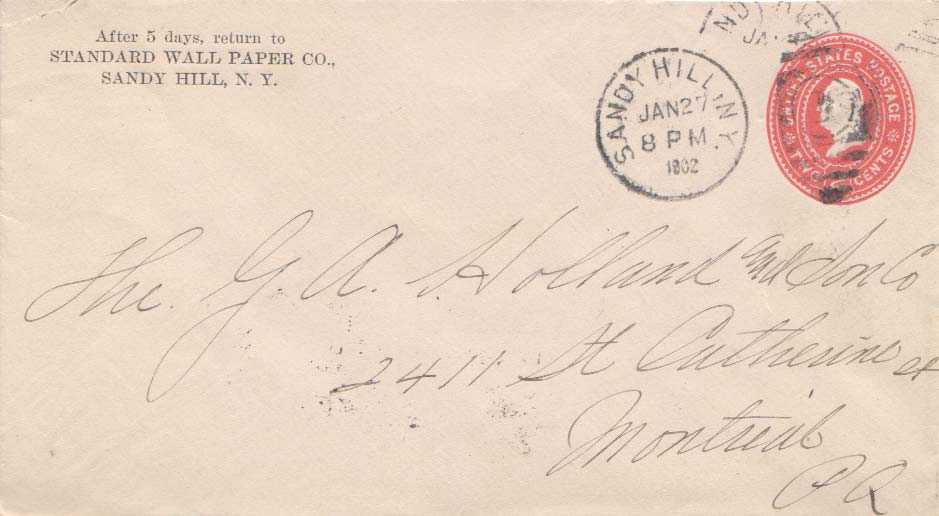 After 5 days, return to
STANDARD WALL PAPER CO.,
SANDY HILL, N. Y.
SANDY HILL, N.Y.
JAN 27
8 PM
1902
NDY HILL
JA
UNITED STATES POSTAGE
TWO CENTS
The. G. A. Holland and Son Co
2411 St Catherine st
Montreal
P Q